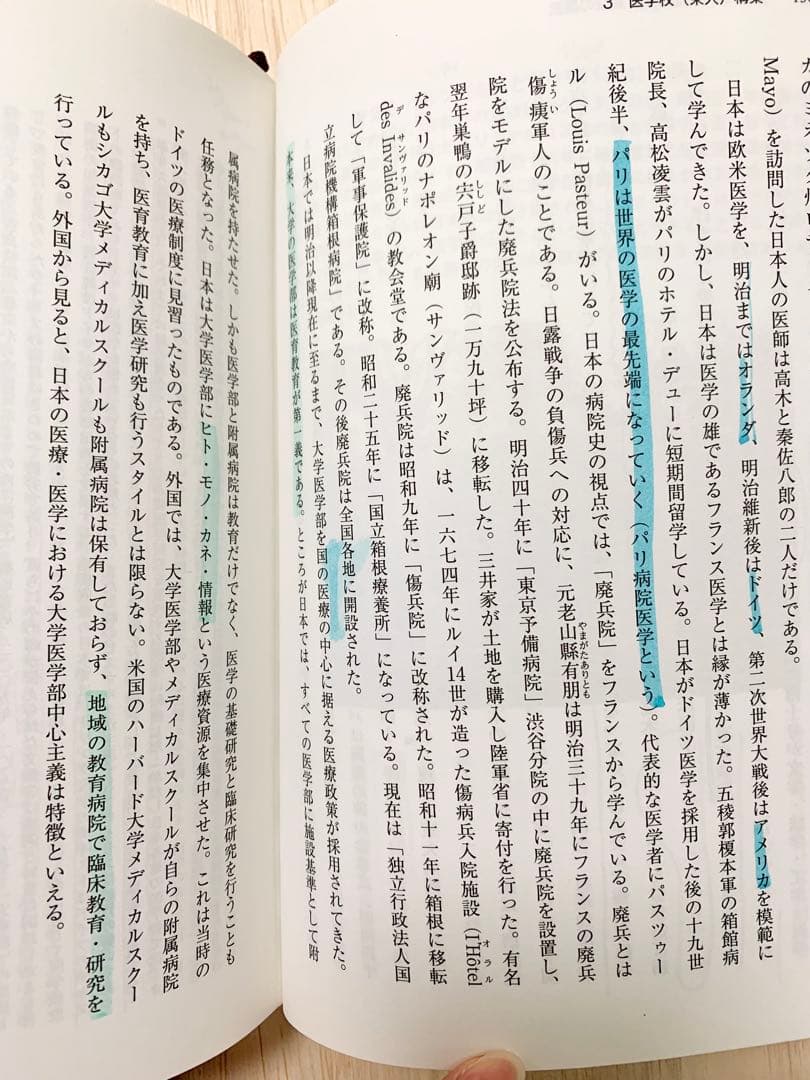 3 医学校（東大）構築
Mayo）を訪問した日本人の医師は高木と秦佐八郎の二人だけである。
日本は欧米医学を、明治まではオランダ、明治維新後はドイツ、第二次世界大戦後はアメリカを模範に
して学んできた。しかし、日本は医学の雄であるフランス医学とは縁が薄かった。五稜郭榎本軍の箱館病
院長、高松凌雲がパリのホテル・デューに短期間留学している。日本がドイツ医学を採用した後の十九世
紀後半、パリは世界の医学の最先端になっていく（パリ病院医学という）。代表的な医学者にパスツゥー
ル（Louis Pasteur）がいる。日本の病院史の視点では、「廃兵院」をフランスから学んでいる。廃兵とは
傷痍軍人のことである。日露戦争の負傷兵への対応に、元老山縣有朋は明治三十九年にフランスの廃兵
院をモデルにした廃兵院法を公布する。明治四十年に「東京予備病院」渋谷分院の中に廃兵院を設置し、
翌年巣鴨の宍戸子爵邸跡（一万九十坪）に移転した。三井家が土地を購入し陸軍省に寄付を行った。有名
なパリのナポレオン廟（サンヴァリッド）は、一六七四年にルイ14世が造った傷病兵入院施設（l'Hôtel
des Invalides）の教会堂である。廃兵院は昭和九年に「傷兵院」に改称された。昭和十一年に箱根に移転
して「軍事保護院」に改称。昭和二十五年に「国立箱根療養所」になっている。現在は「独立行政法人国
立病院機構箱根病院」である。その後廃兵院は全国各地に開設された。
日本では明治以降現在に至るまで、大学医学部を国の医療の中心に据える医療政策が採用されてきた。
本来、大学の医学部は医育教育が第一義である。ところが日本では、すべての医学部に施設基準として附
属病院を持たせた。しかも医学部と附属病院は教育だけでなく、医学の基礎研究と臨床研究を行うことも
任務となった。日本は大学医学部にヒト・モノ・カネ・情報という医療資源を集中させた。これは当時の
ドイツの医療制度に見習ったものである。外国では、大学医学部やメディカルスクールが自らの附属病院
を持ち、医育教育に加え医学研究も行うスタイルとは限らない。米国のハーバード大学メディカルスクー
ルもシカゴ大学メディカルスクールも附属病院は保有しておらず、地域の教育病院で臨床教育・研究を
行っている。外国から見ると、日本の医療・医学における大学医学部中心主義は特徴といえる。